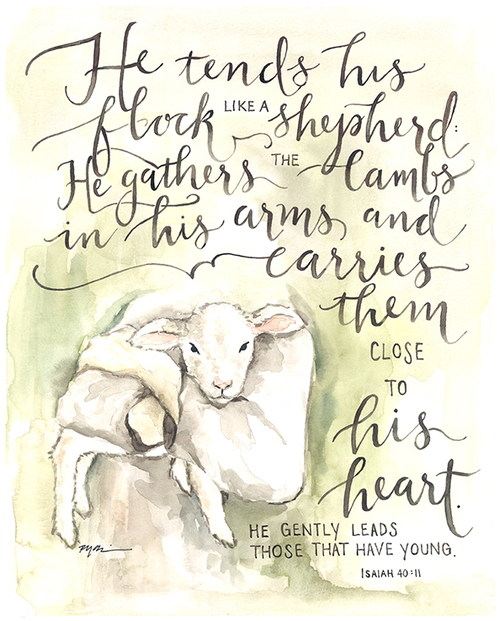 He tends his
flock LIKE A shepherd:
He gathers THE lambs
in his arms and
carries
them
CLOSE
TO
his
heart.
HE GENTLY LEADS
THOSE THAT HAVE YOUNG.
ISAIAH 40:11